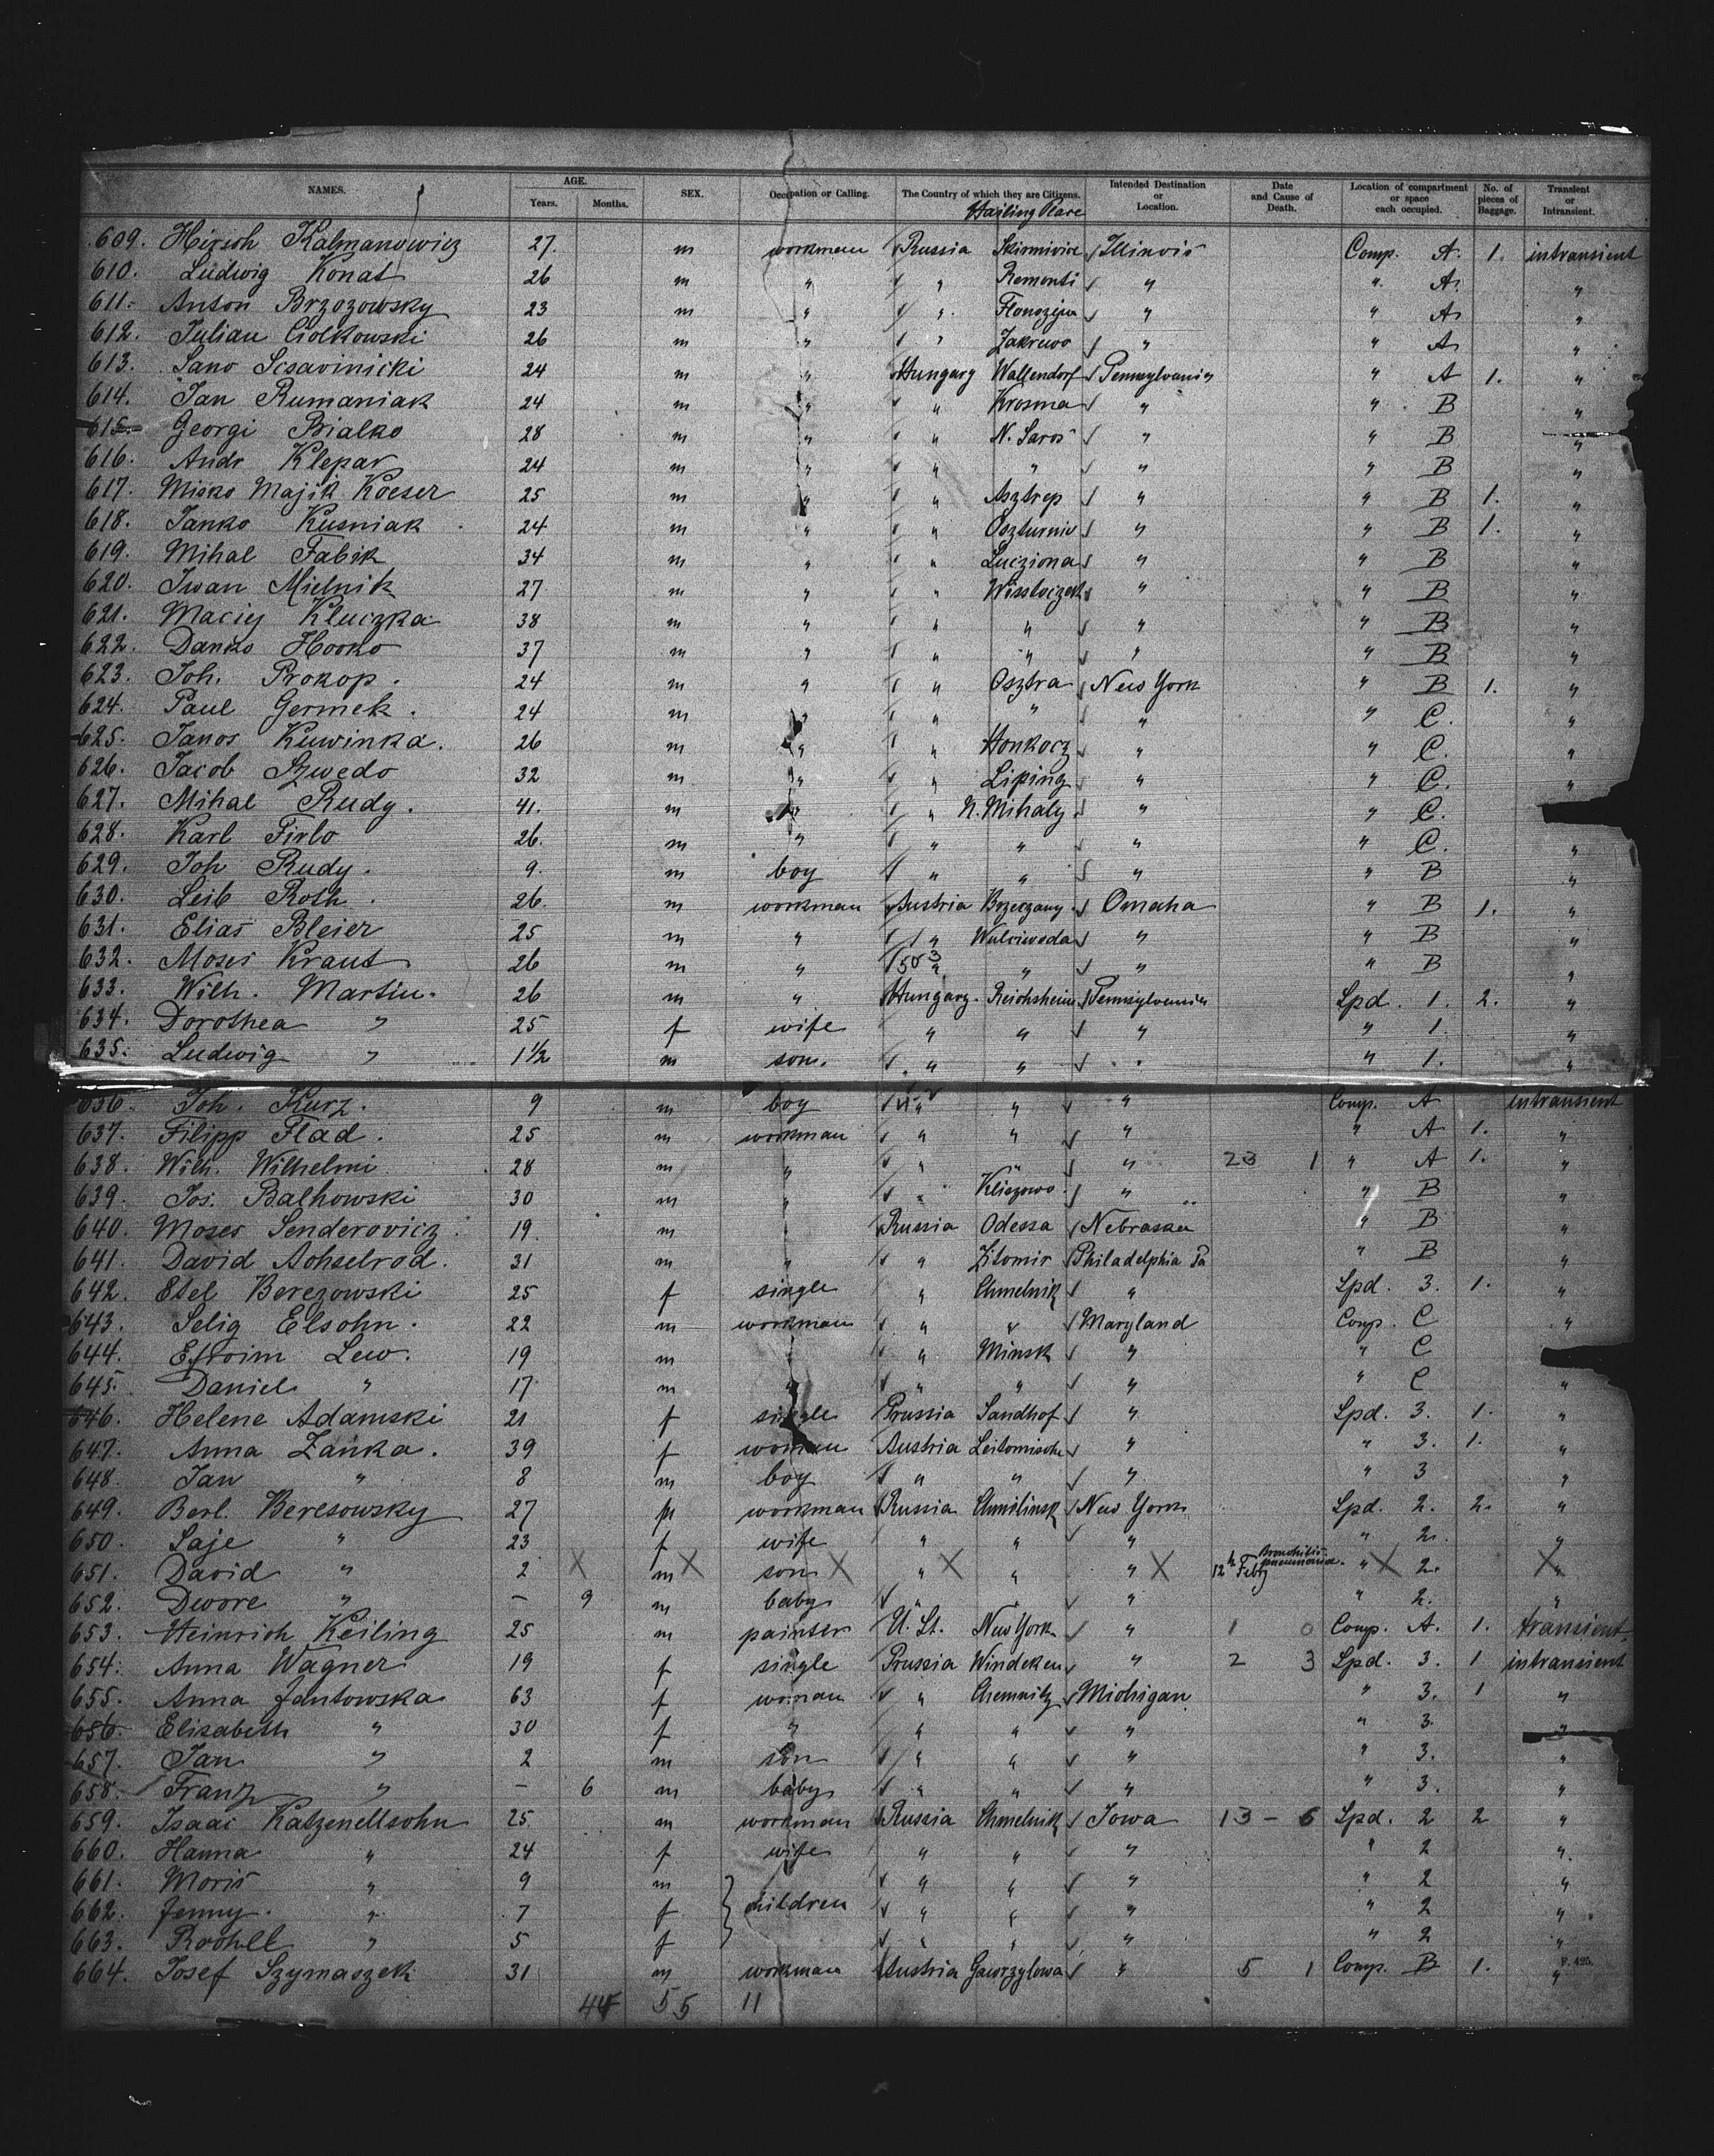 NAMES. AGE. Years. Months. SEX. Occupation or Calling. The Country of which they are Citizens. Hailing Place Intended Destination or Location. Date and Cause of Death. Location of compartment or space each occupied. No. of pieces of Baggage. Transient or Intransient.
609. Hirsch Kalmanowicz 27. m workman Russia Skierniwice Illinois Comp. A. 1. intransient
610. Ludwig Konat 26 m " " Remonti " " A. "
611. Anton Brzozowsky 23 m " " " " A. "
612. Julian Ciolkowski 26 m " " Zakrewo " " A "
613. Sano Scsavinicki 24 m " Hungary Wallendorf Pennsylvania " A 1. "
614. Jan Rumaniak 24 m " " Krosma " " B "
615. Georgi Bialko 28 m " " N. Saros " " B "
616. Andr Klepar 24 m " " " " " B "
617. Misko Majik Koeser 25 m " " Asztrep " " B 1. "
618. Janko Kusniak 24 m " " Oszturnio " " B 1. "
619. Mihal Fabik 34 m " " Lucziona " " B "
620. Iwan Mielnik 27 m " " Wisstoczek " " B "
621. Maciej Kluczka 38 m " " " " " B "
622. Danko Hocko 37 m " " " " " B "
623. Joh. Prokop. 24 m " " Osztra New York " B 1. "
624. Paul Germek. 24 m " " " " " C. "
625. Janos Kuwinka. 26 m " " Honkocz " " C. "
626. Jacob Szwedo 32 m " " Liping " " C. "
627. Mihal Rudy. 41. m " " N. Mihaly " " C.
628. Karl Firlo 26. m " " " " " C. "
629. Joh Rudy. 9. m boy " " " " B "
630. Leib Roth. 26. m workman Austria Brzeczany Omaha " B 1. "
631. Elias Bleier 25 m " " Wulciwoda " " B "
632. Moses Kraut 26 m " " " " " B "
633. Wilh. Martin. 26 m " Hungary. Reichsheim Pennsylvania Spd. 1. 2. "
634. Dorothea " 25 f wife " " " " 1. "
635. Ludwig " 1 1/2 m son. " " " " 1. "
636. Joh. Kurz. 9 m boy " " " Comp. A intransient
637. Filipp Flad. 25 m workman " " " " A 1. "
638. Wilh. Wilhelmi 28 m " " " " 23 1 " A 1. "
639. Jos. Balhowski 30 m " " Kliczowo " " B "
640. Moses Senderovicz 19. m " Russia Odessa Nebraska " B "
641. David Achselrod. 31 m " " Zitomir Philadelphia Pa " B "
642. Etel Berezowski 25 f single " Chmelnik " Spd. 3. 1. "
643. Selig Elsohn. 22 m workman " " Maryland Comp. C "
644. Efroim Lew. 19 m " " Minsk " " C
645. Daniel " 17 m " " " " " C "
646. Helene Adamski 21 f single Prussia Sandhof " Spd. 3. 1. "
647. Anna Zanka. 39 f woman Austria Leitomischl " " 3. 1. "
648. Jan " 8 m boy " " " " 3 "
649. Berl. Beresowsky 27 m workman Russia Chmilinsk New York Spd. 2. 2. "
650. Saje " 23 f wife " " " " 2. "
651. David " 2 X m X son X " X " " X 12h Feby Bronchitis pneumonia. " X 2. X "
652. Dwore " – 9 m baby " " " " 2. "
653. Heinrich Keiling 25 m painter U. St. New York " 1 0 Comp. A. 1. transient.
654. Anna Wagner 19 f single Prussia Windeken " 2 3 Spd. 3. 1 intransient
655. Anna Jantowska 63 f woman " Chemnitz Michigan " 3. 1 "
656. Elisabeth " 30 f " " " " " 3. "
657. Jan " 2 m son " " " " 3. "
658. Franz " – 6 m baby " " " " 3. "
659. Isaac Katzenellsohn 25. m workman Russia Chmelnik Iowa 13 – 6 Spd. 2 2 "
660. Hanna " 24 f wife " " " " 2 "
661. Moris " 9 m " " " " 2 "
662. Jenny. " 7 f children " " " " 2 "
663. Rochel " 5 f " " " " 2 "
664. Josef Szymaszek 31 m workman Austria Gawrzylowa " 5 1 Comp. B 1. "
P. 425.
44 55 11